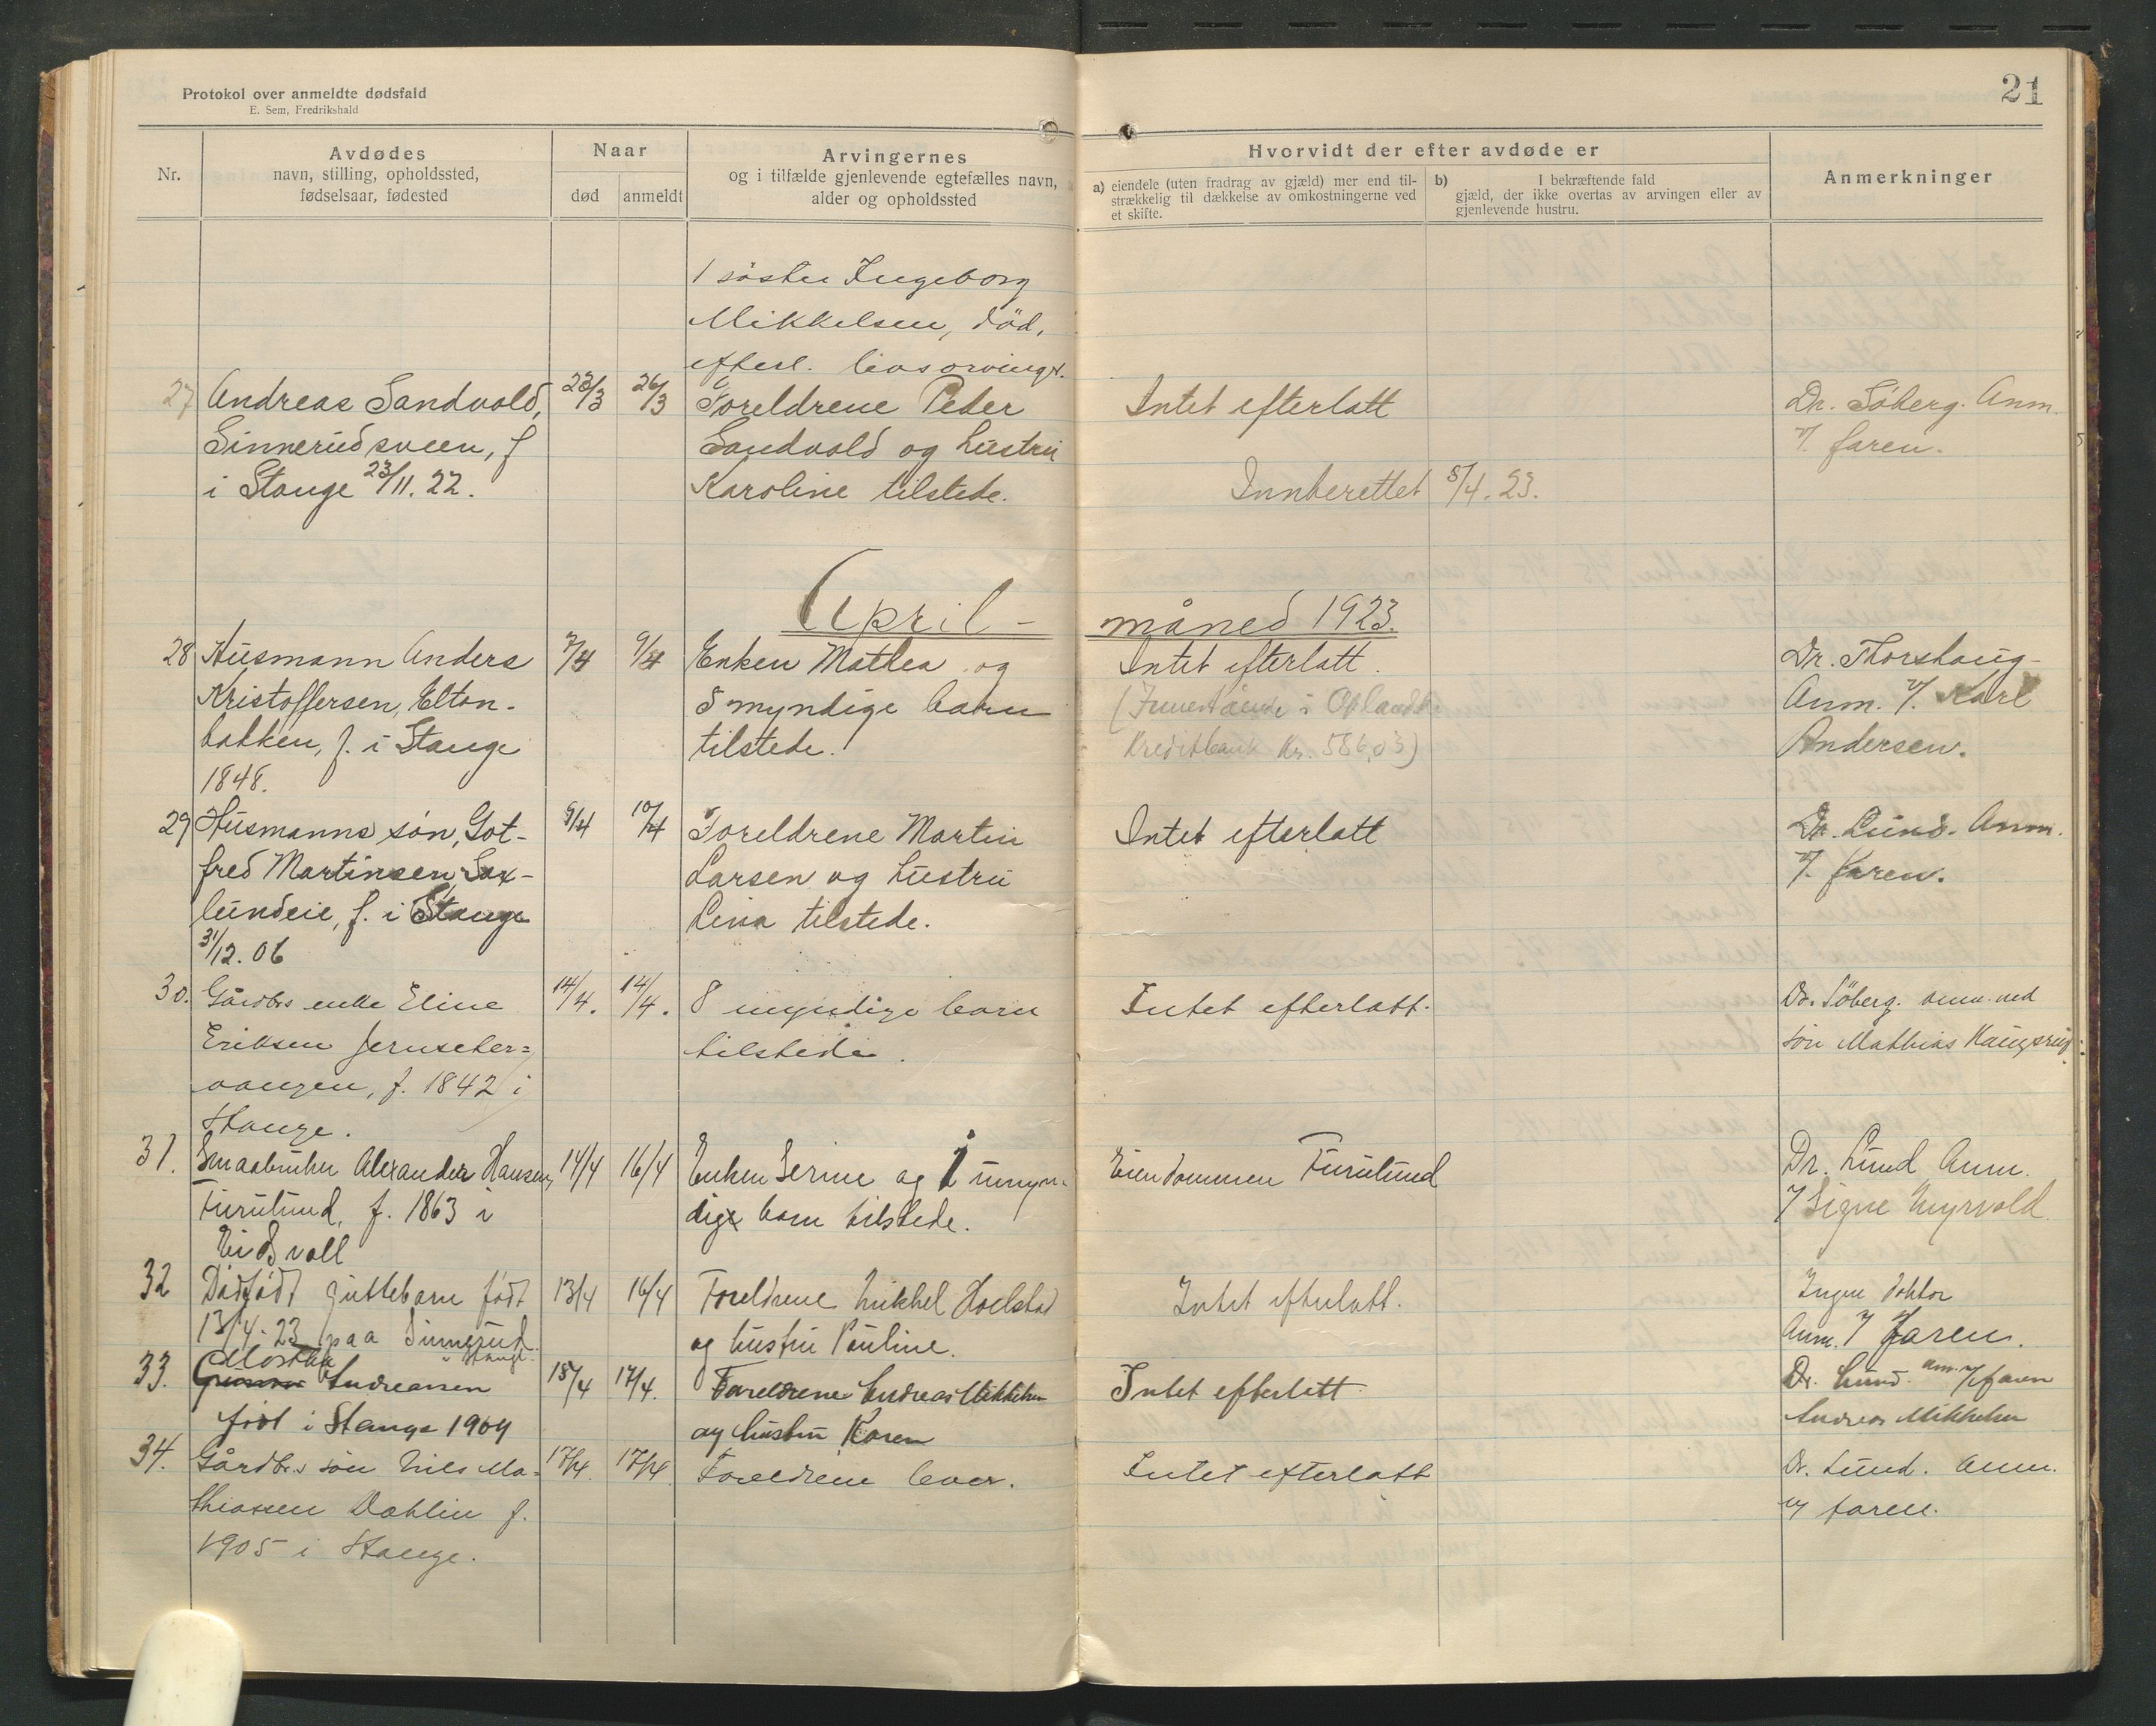 21
Protokol over anmeldte dødsfald
E. Sem, Fredrikshald
Nr.
Avdødes
navn, stilling, opholdssted,
fødselsaar, fødested
Naar
død
anmeldt
Arvingernes
og i tilfælde gjenlevende egtefælles navn,
alder og opholdssted
Hvorvidt der efter avdøde er
a) eiendele (uten fradrag av gjæld) mer end til-
strækkelig til dækkelse av omkostningerne ved
et skifte.
b) I bekræftende fald
gjæld, der ikke overtas av arvingen eller av
gjenlevende hustru.
Anmerkninger
1 søster Ingeborg
Mikkelsen, død,
efterl. livsarvinger.
27 Andreas Sandvold, 23/3 26/3 Foreldrene Peder Intet efterlatt Dr. Søberg. Anm.
Sinnerudsveen, f Sandvold og hustru v/ faren.
i Stange 23/11. 22. Karoline tilstede. Innberettet 5/4. 23.
April - måned 1923.
28 Husmann Anders 7/4 9/4 Enken Mathea og Intet efterlatt. Dr. Thorshaug-
Kristoffersen, Elton- 8 myndige barn (Innestående i Oplandske Anm. v/. Karl
bakken, f. i Stange tilstede. Kreditbank Kr. 586,03) Andersen.
1848.
29 Husmanns søn, Got- 9/4 10/4 Foreldrene Martin Intet efterlatt Dr. Lund. Anm.
fred Martinsen Sax- Larsen og hustru v/. faren.
lundeie, f. i Stange Lina tilstede.
31/12. 06
30. Gårdbrs enke Eline 14/4. 14/4. 8 myndige barn Intet efterlatt. Dr. Søberg. anm. ved
Eriksen Jernseter= tilstede. søn Mathias Haugsrud
vangen, f. 1842 i
Stange.
31. Smaabruker Alexander Hansen, 14/4 16/4 Enken Serine og 1 umyn- Eiendommen Furulund Dr. Lund Anm.
Furulund, f. 1863 i dige barn tilstede. v/ Signe Myrvold
Eidsvoll
32 Dødfødt guttebarn født 13/4 16/4 Foreldrene Mikkel Hoelstad Intet efterlatt. Ingen doktor
13/4. 23 paa Sinnerud og hustru Pauline. Anm. v/ faren.
i Stange.
33. Andreassen 15/4 17/4. Foreldrene Andreas Mikkelsen Intet efterlatt Dr. Lund. anm. v/ faren
født i Stange 1904 og hustru Karen Andreas Mikkelsen
34. Gårdbrs søn Nils Ma- 17/4. 17/4 Foreldrene lever. Intet efterlatt Dr. Lund. Anm.
thiassen Dahlin f. v/ faren.
1905 i Stange.